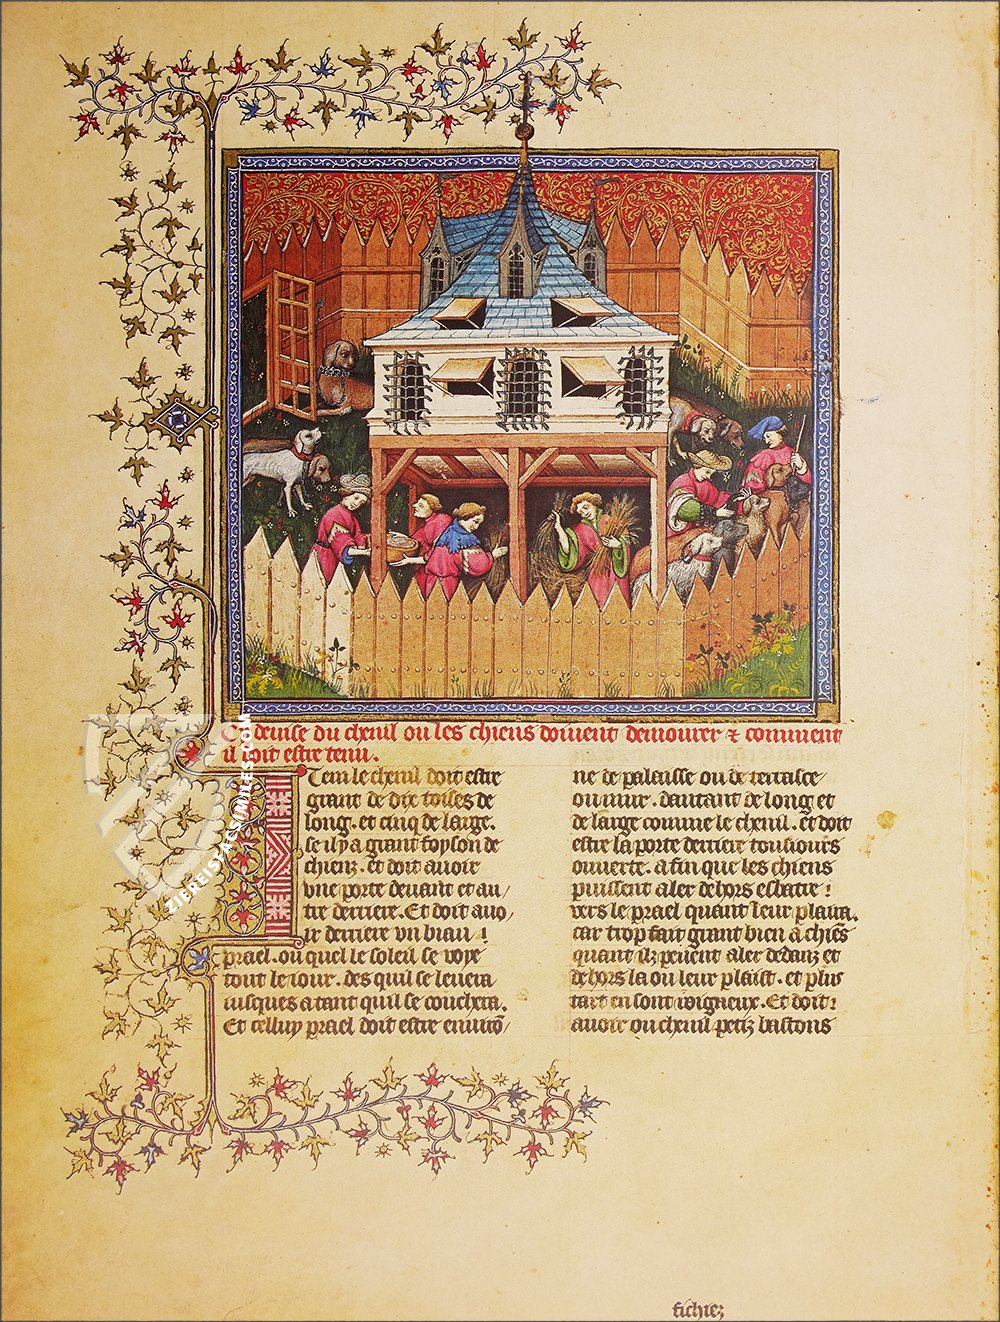 Ci devise du chenil ou les chiens doivent demourer & comment
il doit estre tenu.
Item le chenil doit estre
grant de dix toises de
long. et cinq de large.
se il y a grant foyson de
chienz. et doit avoir
vne porte devant et au/
tre derriere. Et doit auo/
ir derriere vn biau
prael. ou quel le soleil se voye
tout le iour. des quil se levera
iusques a tant quil se couchera.
Et celluy prael doit estre enuirō/
ne de palaisse ou de terrasce
ou mur. dautant de long et
de large comme le chenil. et doit
estre la porte derriere tousiours
ouuerte. a fin que les chiens
puissent aler dehors esbatre
vers le prael quant leur plaira.
car trop fait grant bien a chiēs
quant ilz peuent aler dedanz et
dehors la ou leur plaist. et plus
tart en sont roigneux. Et doit
auoir ou chenil petiz bastons
fichiez
ZIEREISFACSIMILES.COM